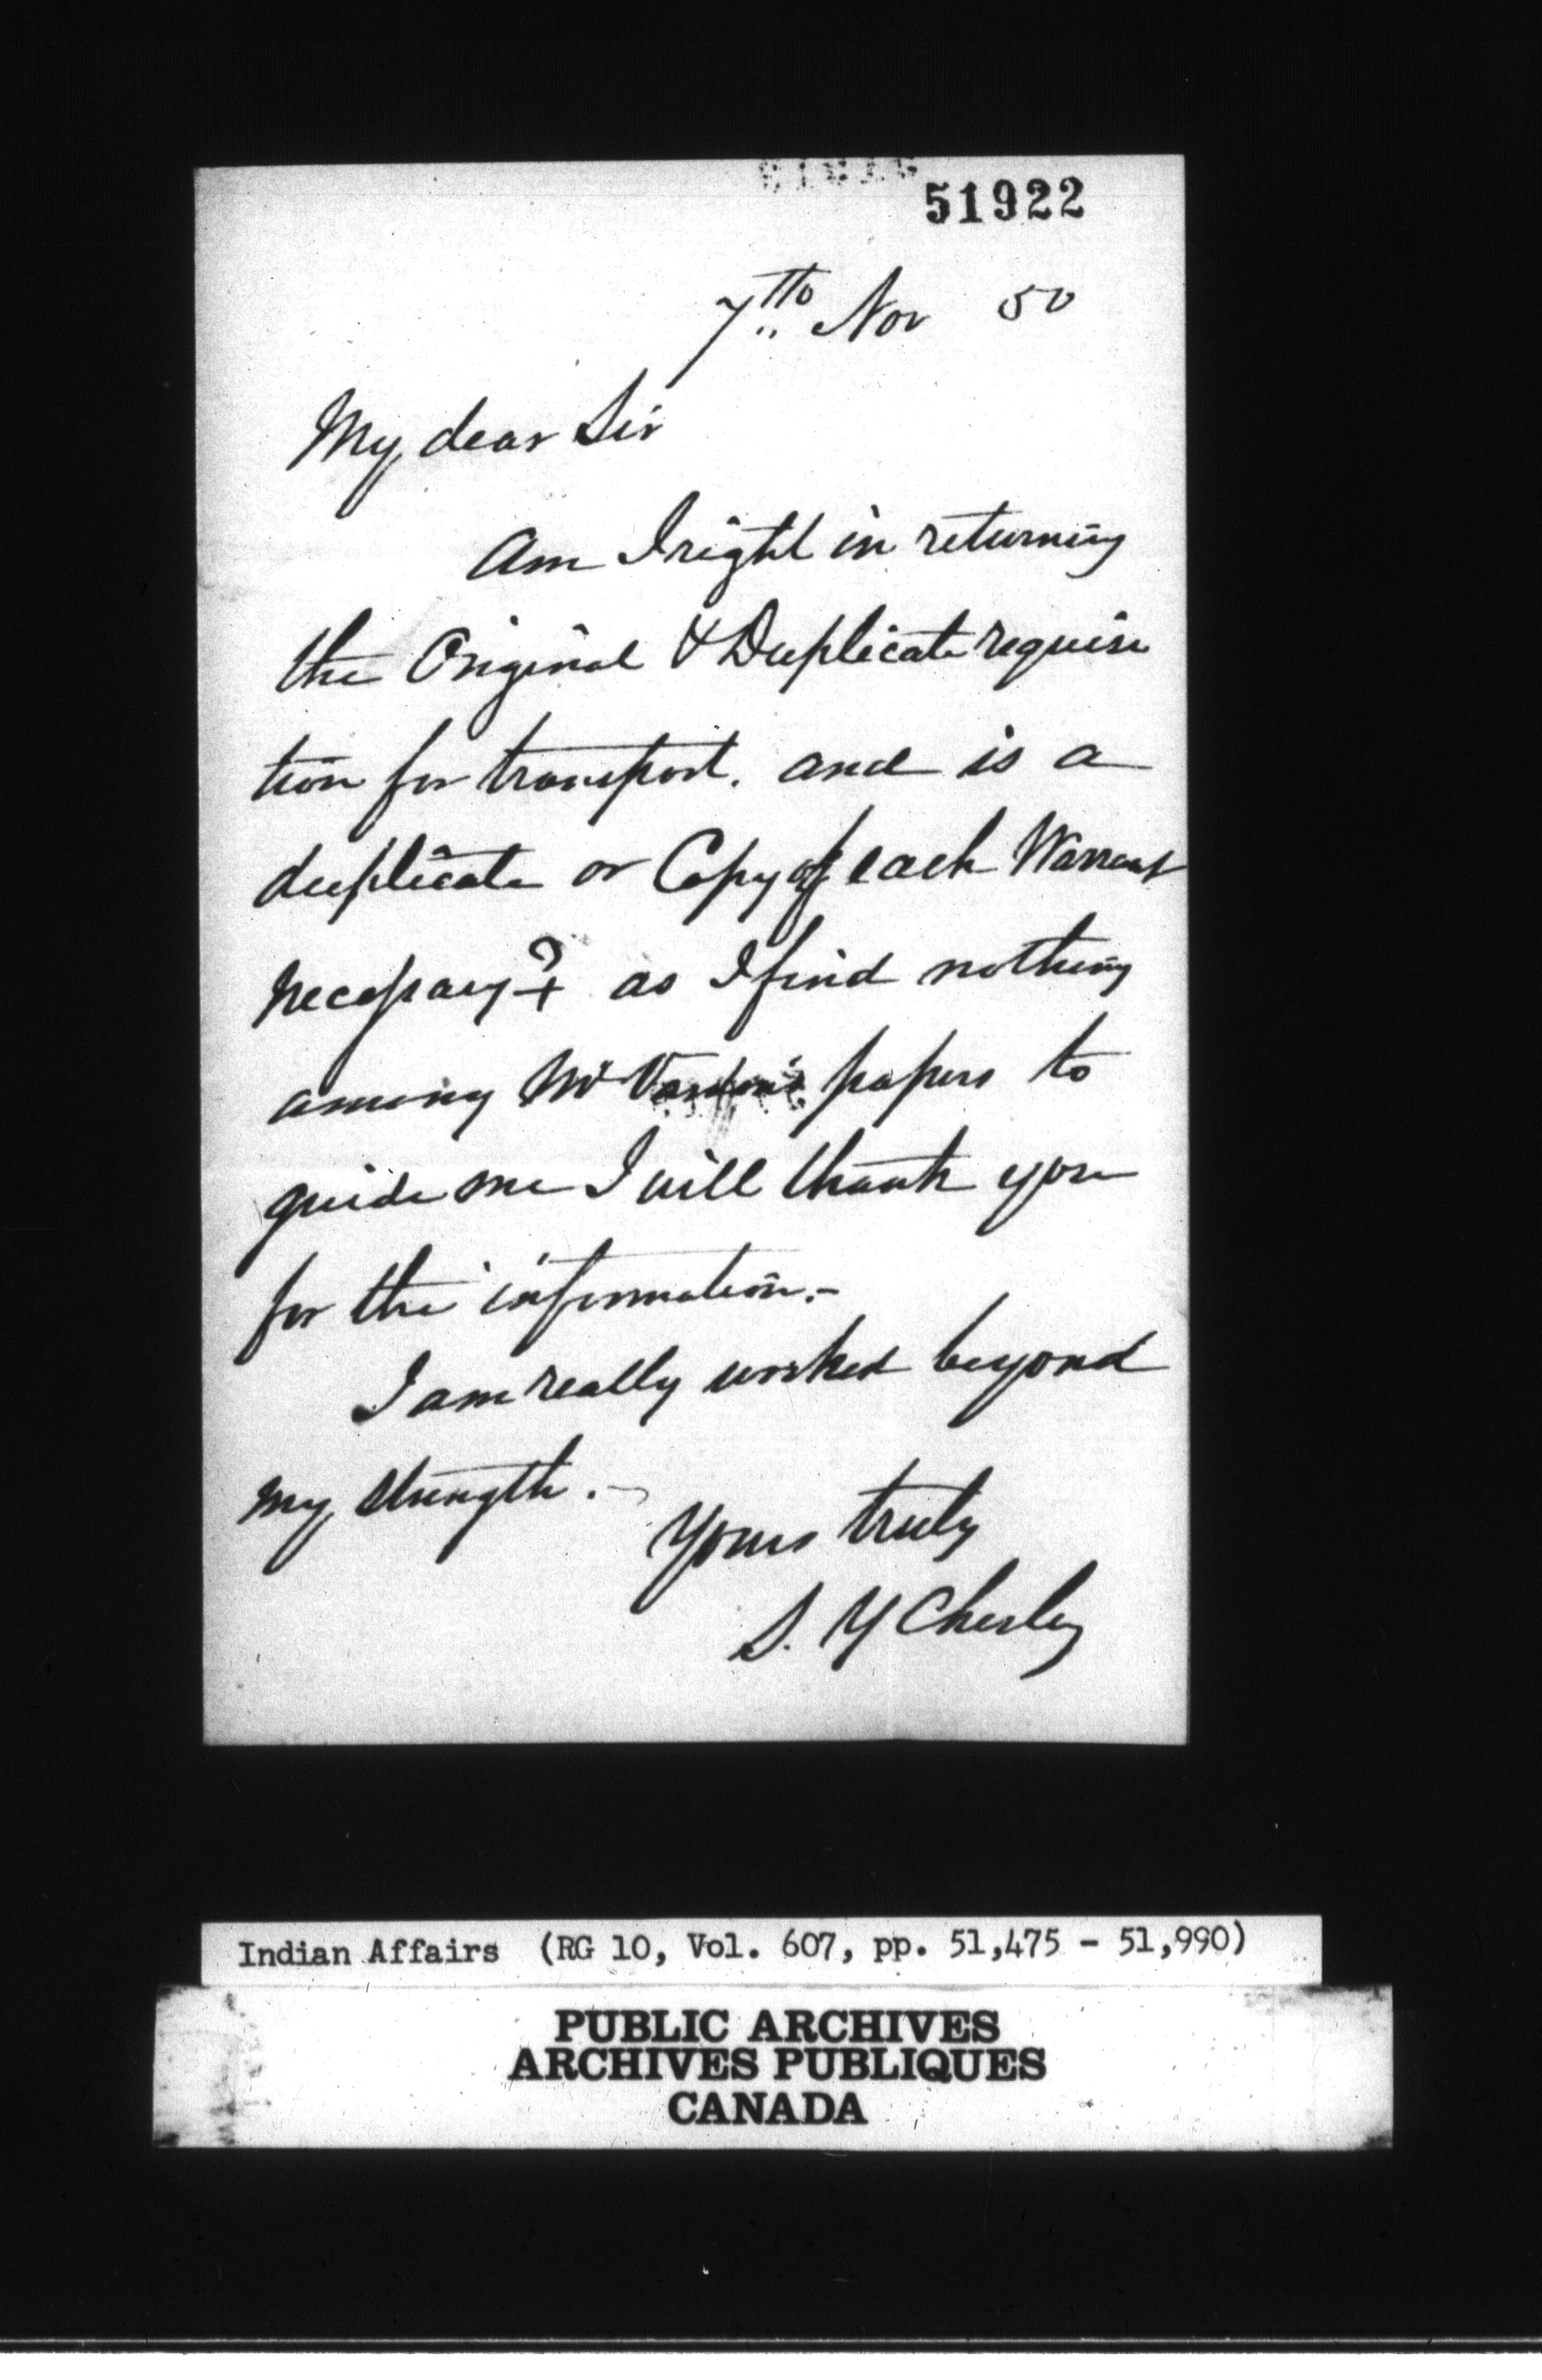 51922
7th Nov 50
My dear Sir
Am I right in returning
the Original & Duplicate requisi
tion for transport. and is a
duplicate or Copy of each Warrant
necessary? as I find nothing
among Mr Vardon's papers to
guide me I will thank you
for the information.-
I am really worked beyond
my strength.-
Yours truly
S. Y Chesley
Indian Affairs (RG 10, Vol. 607, pp. 51,475 - 51,990)
PUBLIC ARCHIVES
ARCHIVES PUBLIQUES
CANADA